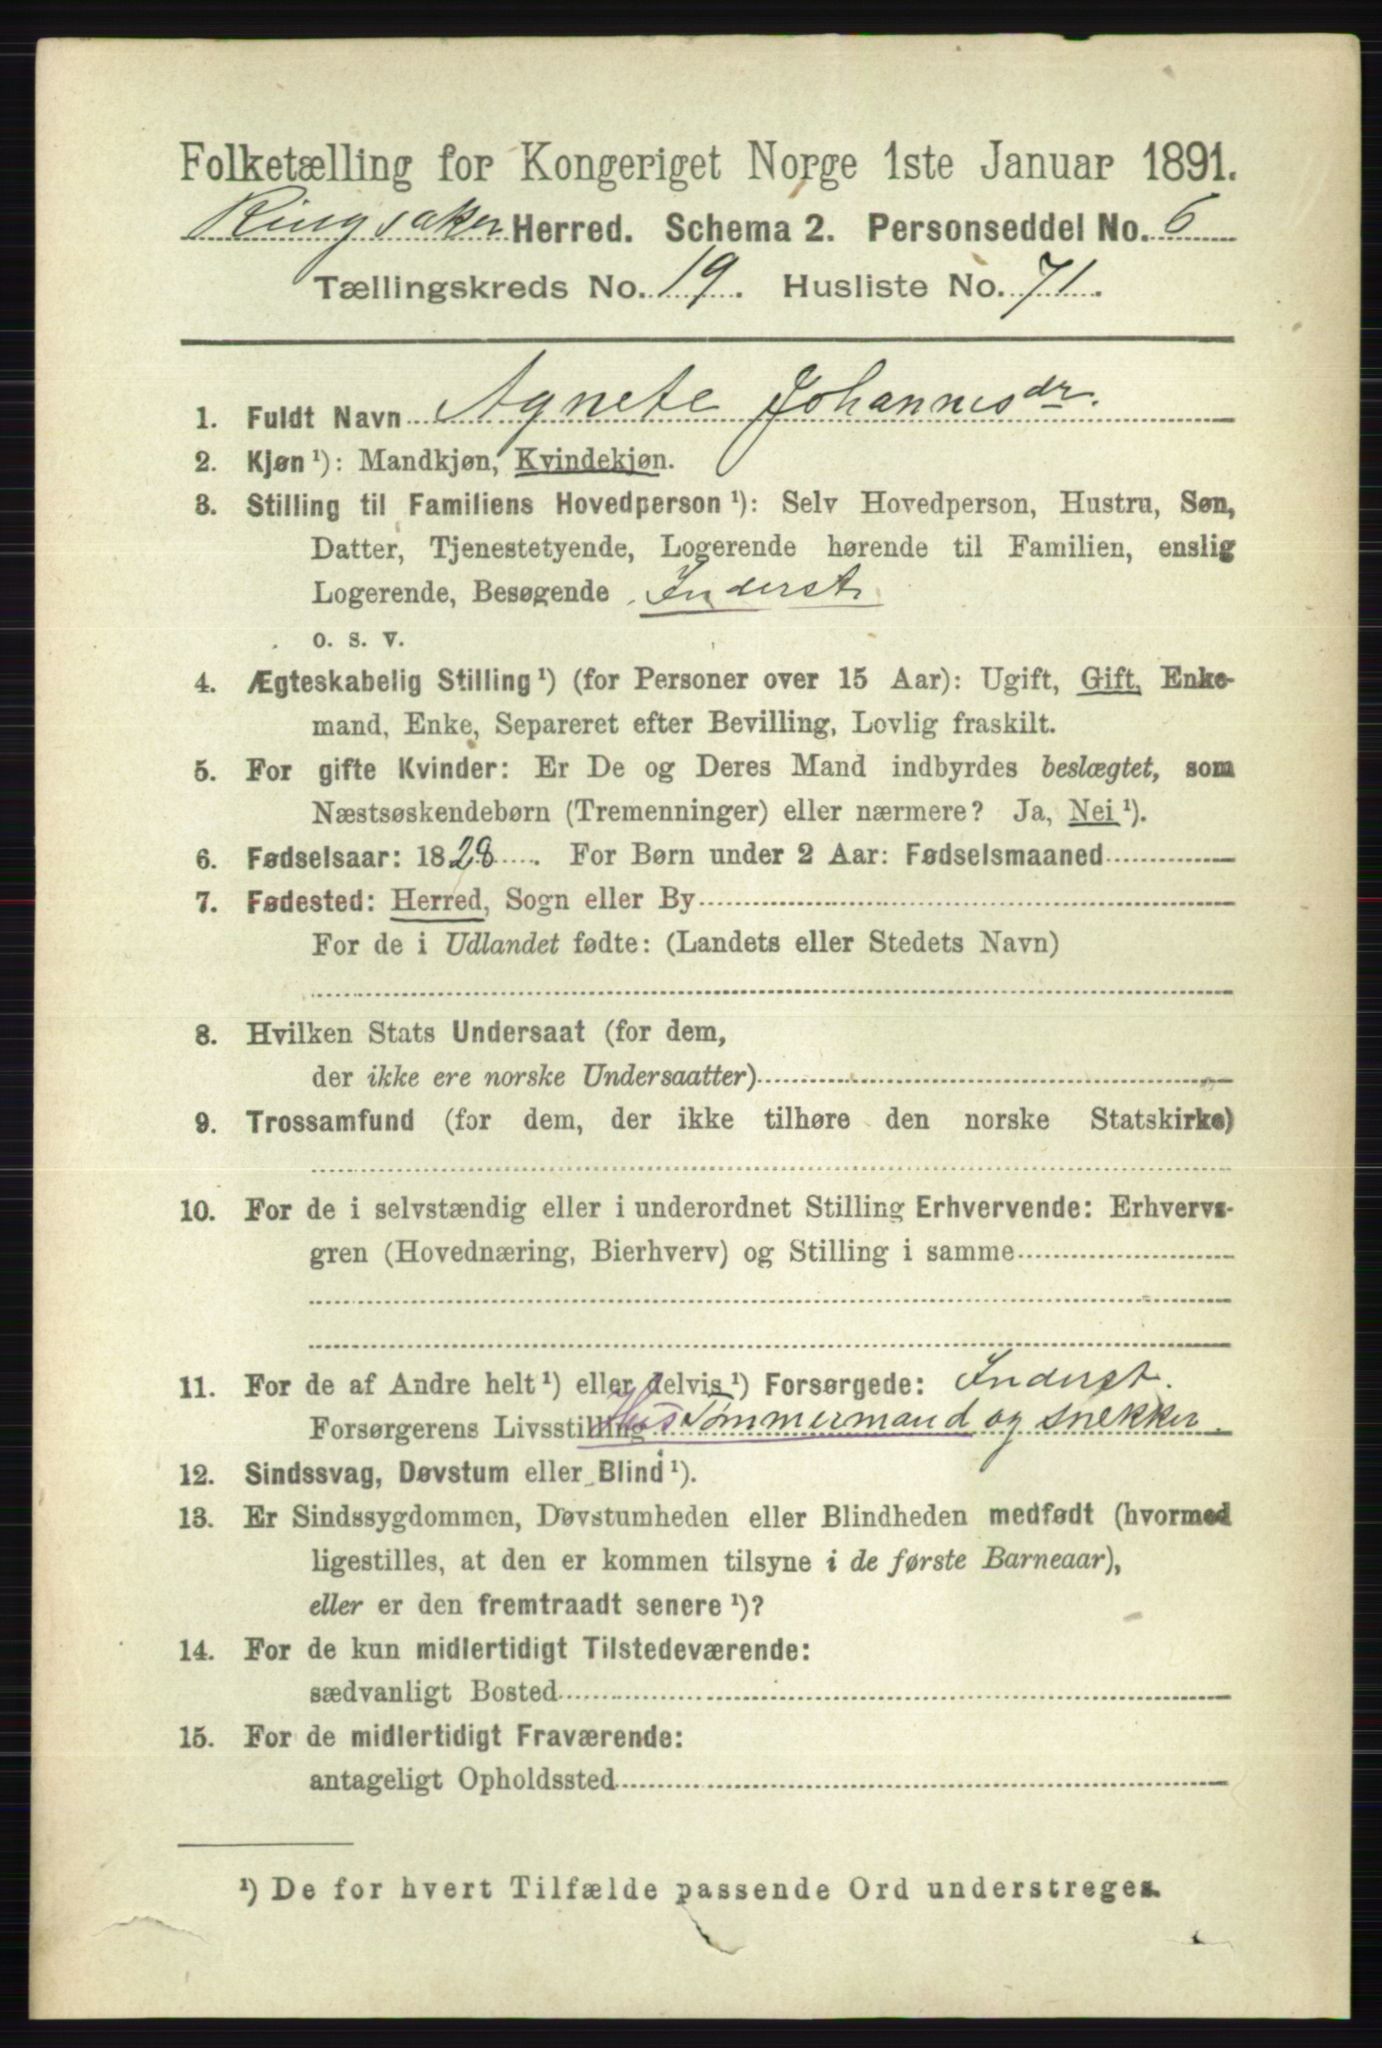 Folketælling for Kongeriget Norge 1ste Januar 1891.
Ringsaker Herred. Schema 2. Personseddel No. 6
Tællingskreds No. 19. Husliste No. 71.
1. Fuldt Navn Agnete Johannesdr.
2. Kjøn ¹): Mandkjøn, Kvindekjøn.
3. Stilling til Familiens Hovedperson ¹): Selv Hovedperson, Hustru, Søn,
Datter, Tjenestetyende, Logerende hørende til Familien, enslig
Logerende, Besøgende Inderst
o. s. v.
4. Ægteskabelig Stilling ¹) (for Personer over 15 Aar): Ugift, Gift, Enke-
mand, Enke, Separeret efter Bevilling, Lovlig fraskilt.
5. For gifte Kvinder: Er De og Deres Mand indbyrdes beslægtet, som
Næstsøskendebørn (Tremenninger) eller nærmere? Ja, Nei ¹).
6. Fødselsaar: 1828. For Børn under 2 Aar: Fødselsmaaned
7. Fødested: Herred, Sogn eller By
For de i Udlandet fødte: (Landets eller Stedets Navn)
8. Hvilken Stats Undersaat (for dem,
der ikke ere norske Undersaatter)
9. Trossamfund (for dem, der ikke tilhøre den norske Statskirke)
10. For de i selvstændig eller i underordnet Stilling Erhvervende: Erhvervs-
gren (Hovednæring, Bierhverv) og Stilling i samme
11. For de af Andre helt ¹) eller delvis ¹) Forsørgede: Inderst.
Forsørgerens Livsstilling Hus Tømmermand og Snekker.
12. Sindssvag, Døvstum eller Blind ¹).
13. Er Sindssygdommen, Døvstumheden eller Blindheden medfødt (hvormed
ligestilles, at den er kommen tilsyne i de første Barneaar),
eller er den fremtraadt senere ¹)?
14. For de kun midlertidigt Tilstedeværende:
sædvanligt Bosted
15. For de midlertidigt Fraværende:
antageligt Opholdssted
¹) De for hvert Tilfælde passende Ord understreges.